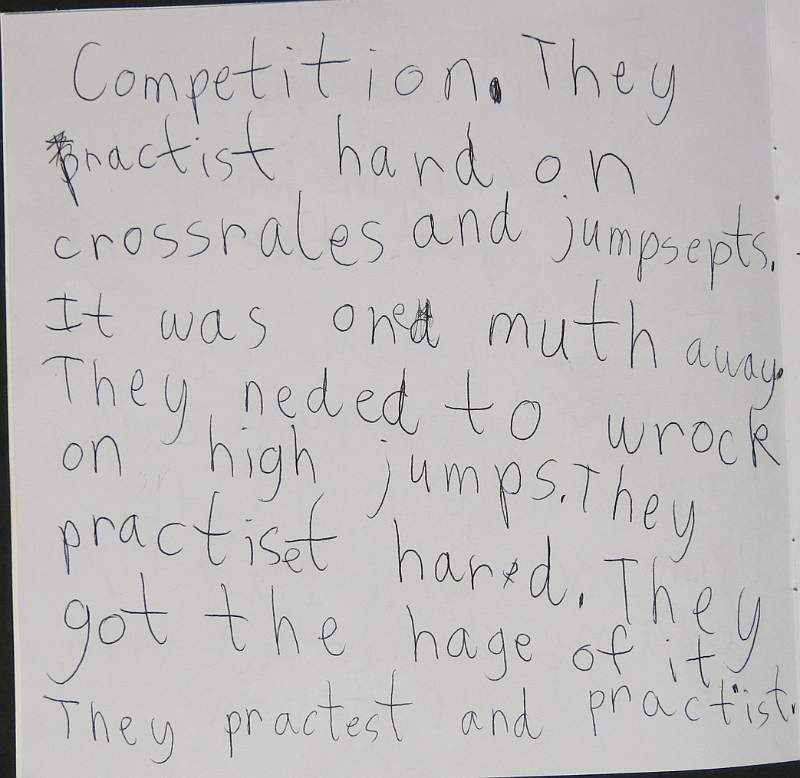 Competition. They
practist hard on
crossrales and jumpsepts.
It was one muth away.
They neded to wrock
on high jumps. They
practiset hard. They
got the hage of it
They practest and practist.